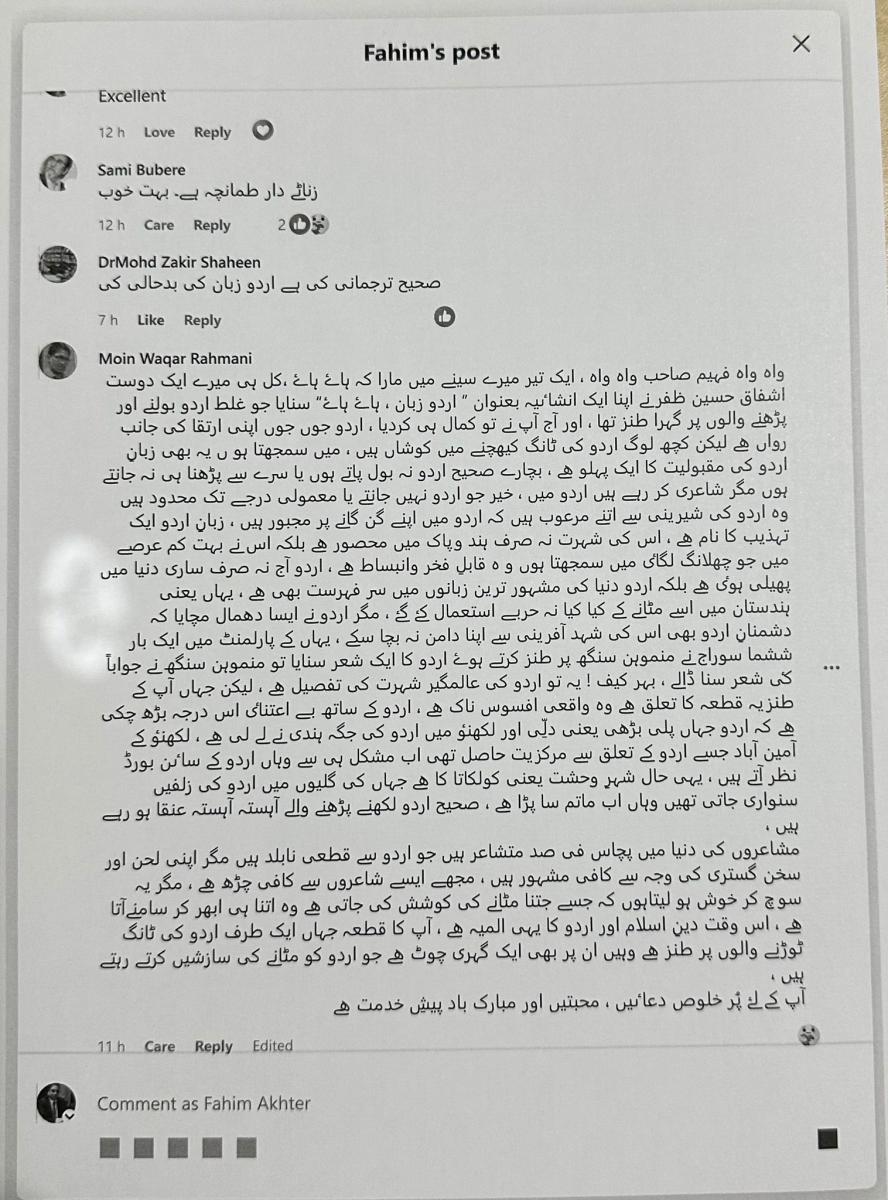 Fahim's post
Excellent
12 h Love Reply
Sami Bubere
زناٹے دار طمانچہ ہے۔ بہت خوب
12 h Care Reply 2
DrMohd Zakir Shaheen
صحیح ترجمانی کی ہے اردو زبان کی بدحالی کی
7 h Like Reply
Moin Waqar Rahmani
واہ واہ فہیم صاحب واہ واہ ، ایک تیر میرے سینے میں مارا کہ ہاۓ ہاۓ ،کل ہی میرے ایک دوست
اشفاق حسین ظفرنے اپنا ایک انشائیہ بعنوان " اردو زبان ، ہاۓ ہاۓ" سنایا جو غلط اردو بولنے اور
پڑھنے والوں پر گہرا طنز تھا ، اور آج آپ نے تو کمال ہی کردیا ، اردو جوں جوں اپنی ارتقا کی جانب
رواں ھے لیکن کچھ لوگ اردو کی ٹانگ کیھچنے میں کوشاں ہیں ، میں سمجھتا ہو ں یہ بھی زبان
اردو کی مقبولیت کا ایک پہلو ھے ، بچارے صحیح اردو نہ بول پاتے ہوں یا سرے سے پڑھنا ہی نہ جانتے
ہوں مگر شاعری کر رہے ہیں اردو میں ، خیر جو اردو نہیں جانتے یا معمولی درجے تک محدود ہیں
وہ اردو کی شیرینی سے اتنے مرعوب ہیں کہ اردو میں اپنے گن گانے پر مجبور ہیں ، زبانِ اردو ایک
تہذیب کا نام ھے ، اس کی شہرت نہ صرف ہند وپاک میں محصور ھے بلکہ اس نے بہت کم عرصے
میں جو چھلانگ لگائ میں سمجھتا ہوں و ہ قابلِ فخر وانبساط ھے ، اردو آج نہ صرف ساری دنیا میں
پھیلی ہوئ ھے بلکہ اردو دنیا کی مشہور ترین زبانوں میں سر فہرست بھی ھے ، یہاں یعنی
ہندستان میں اسے مٹانے کے کیا کیا نہ حربے استعمال کۓ گۓ ، مگر اردو نے ایسا دھمال مچایا کہ
دشمنانِ اردو بھی اس کی شہد آفرینی سے اپنا دامن نہ بچا سکے ، یہاں کے پارلمنٹ میں ایک بار
ششما سوراج نے منموہن سنگھ پر طنز کرتے ہوۓ اردو کا ایک شعر سنایا تو منموہن سنگھ نے جواباً
کئی شعر سنا ڈالے ، بہر کیف ! یہ تو اردو کی عالمگیر شہرت کی تفصیل ھے ، لیکن جہاں آپ کے
طنزیہ قطعہ کا تعلق ھے وہ واقعی افسوس ناک ھے ، اردو کے ساتھ بے اعتنائ اس درجہ بڑھ چکی
ھے کہ اردو جہاں پلی بڑھی یعنی دلّی اور لکھنؤ میں اردو کی جگہ ہندی نے لے لی ھے ، لکھنؤ کے
آمین آباد جسے اردو کے تعلق سے مرکزیت حاصل تھی اب مشکل ہی سے وہاں اردو کے سائن بورڈ
نظر آتے ہیں ، یہی حال شہرِ وحشت یعنی کولکاتا کا ھے جہاں کی گلیوں میں اردو کی زلفیں
سنواری جاتی تھیں وہاں اب ماتم سا پڑا ھے ، صحیح اردو لکھنے پڑھنے والے آہستہ آہستہ عنقا ہو رہے
ہیں ،
مشاعروں کی دنیا میں پچاس فی صد متشاعر ہیں جو اردو سے قطعی نابلد ہیں مگر اپنی لحن اور
سخن گستری کی وجہ سے کافی مشہور ہیں ، مجھے ایسے شاعروں سے کافی چڑھ ھے ، مگر یہ
سوچ کر خوش ہو لیتاہوں کہ جسے جتنا مٹانے کی کوشش کی جاتی ھے وہ اتنا ہی ابھر کر سامنےآتا
ھے ، اس وقت دین اسلام اور اردو کا یہی المیہ ھے ، آپ کا قطعہ جہاں ایک طرف اردو کی ٹانگ
توڑنے والوں پر طنز ھے وہیں ان پر بھی ایک گہری چوٹ ھے جو اردو کو مٹانے کی سازشیں کرتے رہتے
ہیں ،
آپ کے لۓ پُر خلوص دعائیں ، محبتیں اور مبارک باد پیشِ خدمت ھے
11 h Care Reply Edited
Comment as Fahim Akhter